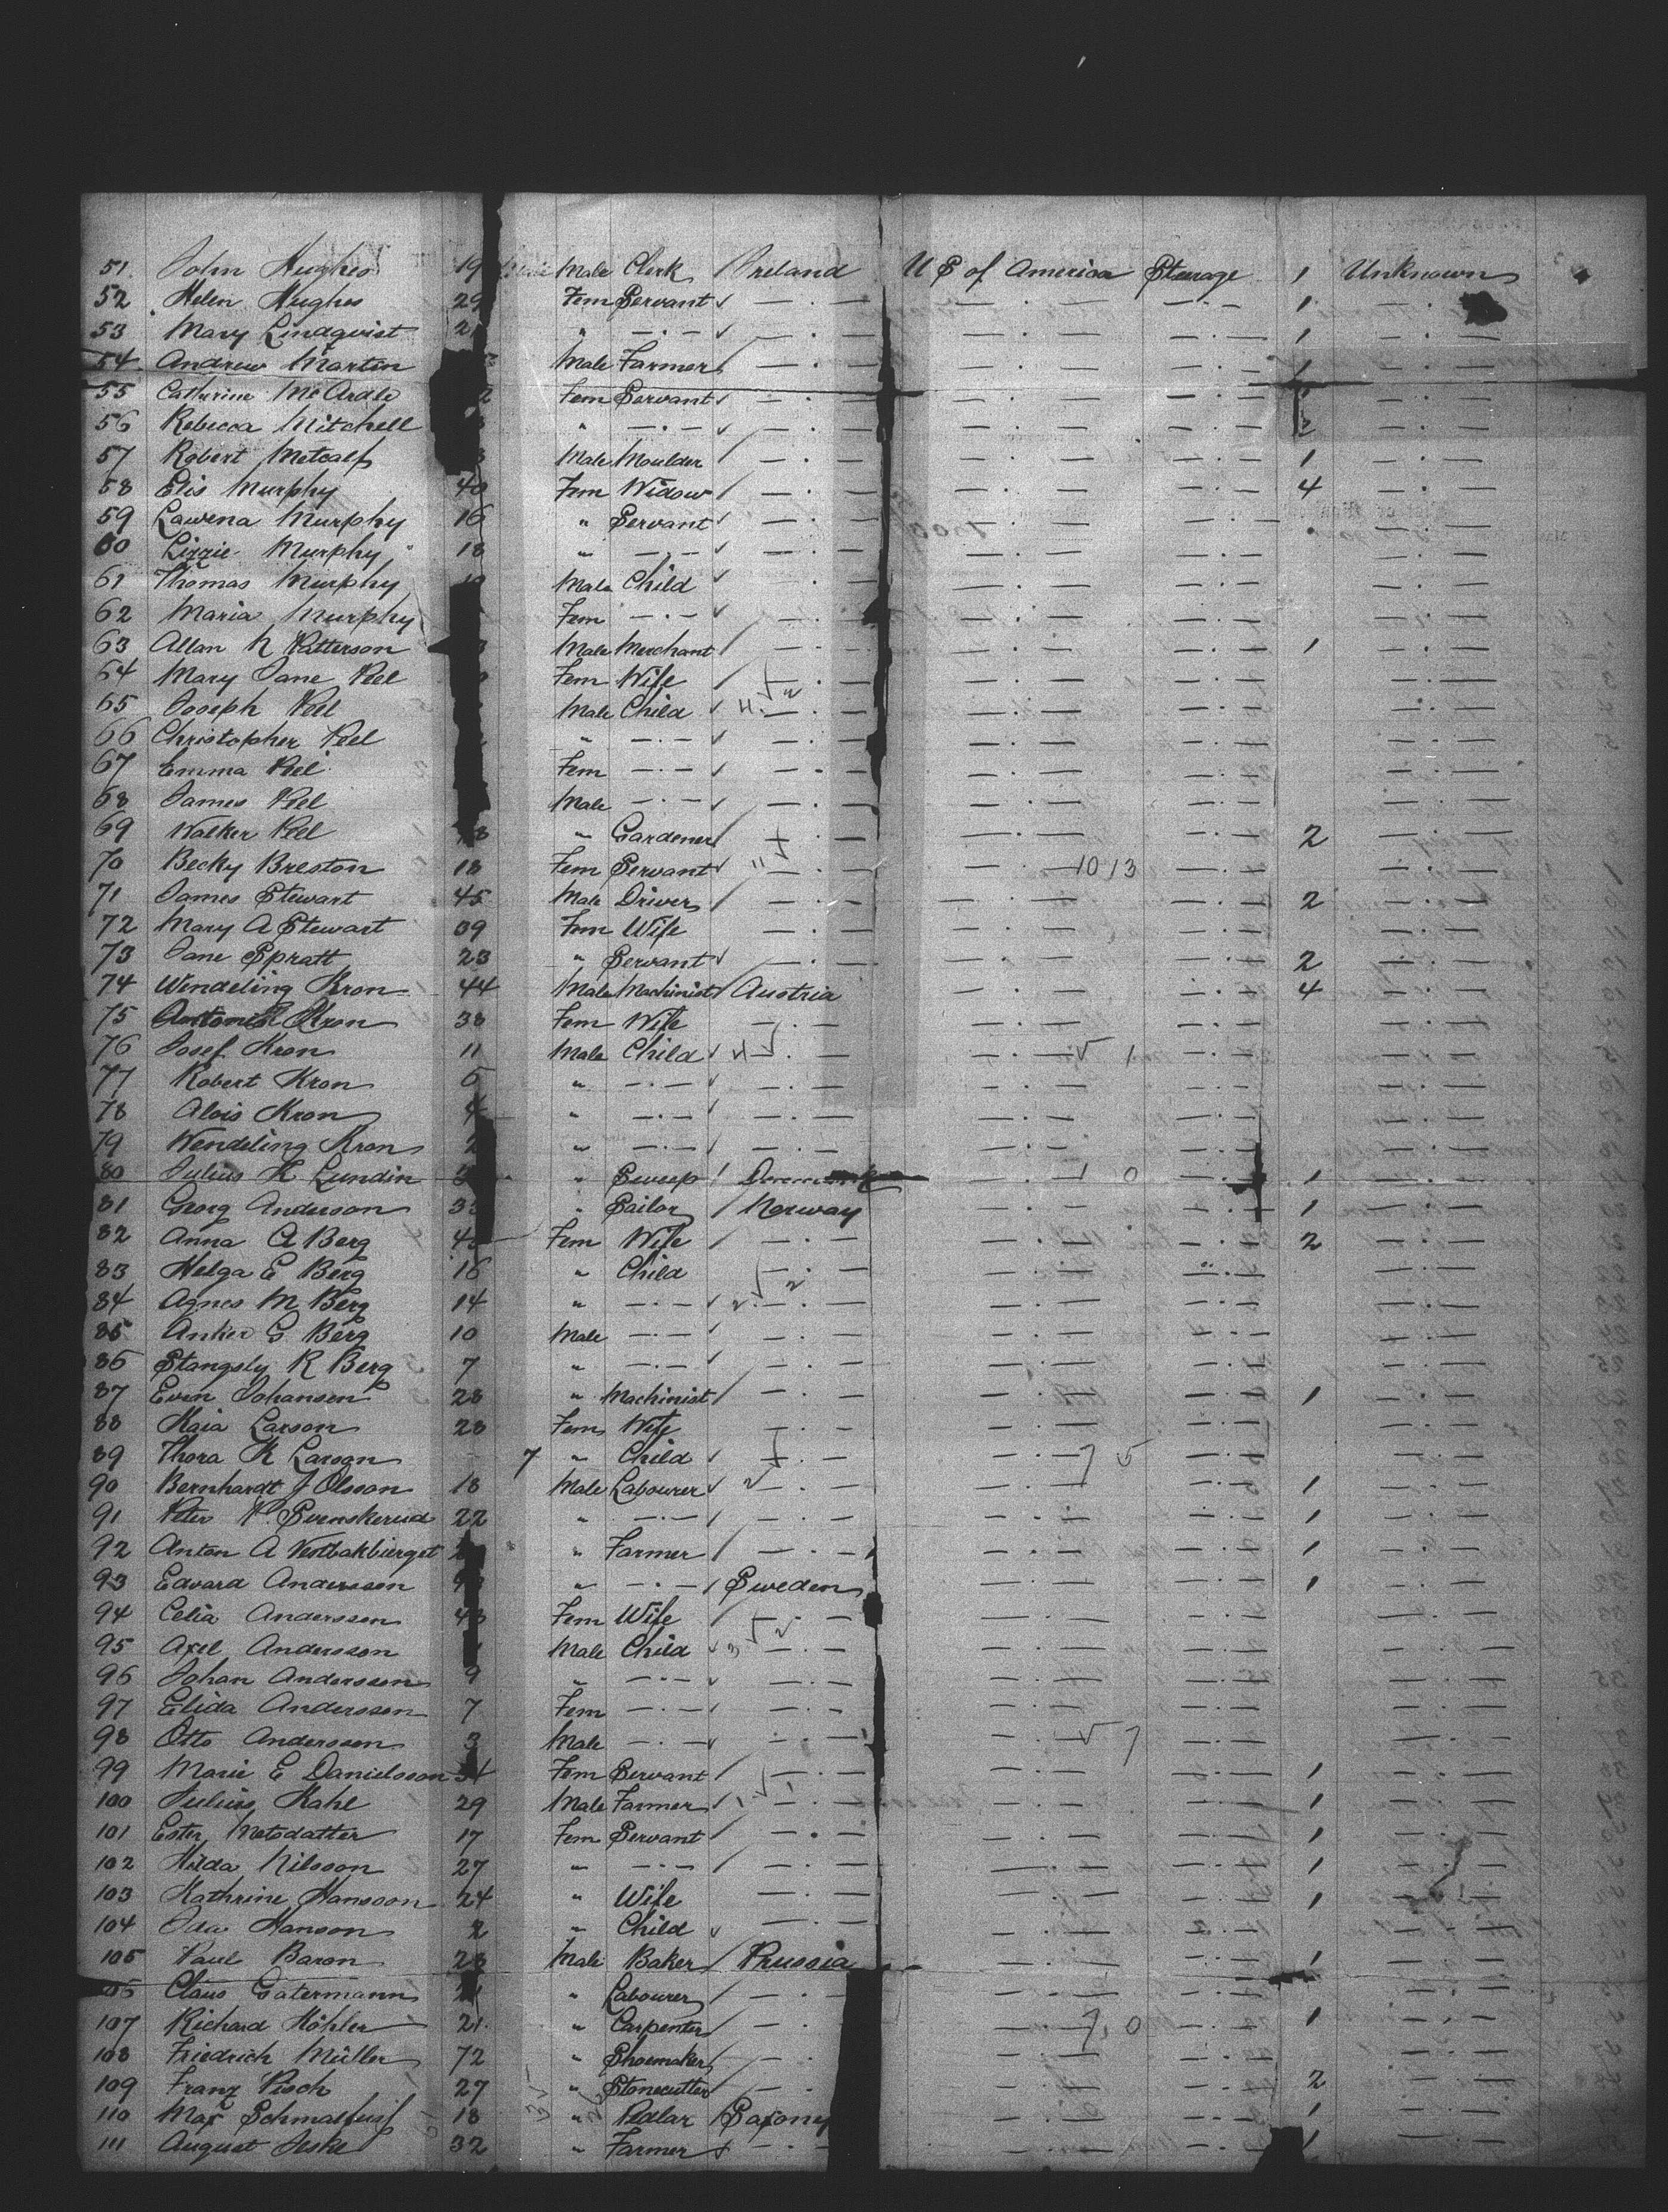 51 John Hughes 19 Male Clerk / Ireland U S of America Steerage 1 Unknown
52 Helen Hughes 29 Fem Servant ✓ — . — — . — — . — 1 — . —
53 Mary Lindqvist 2 " — . — ✓ — . — — . — — . — 1 — . —
54 Andrew Martin Male Farmer / — . — — . — — . — 1 — . —
55 Catherine McArdle 2 Fem Servant ✓ — . — — . — — . — — . —
56 Rebecca Mitchell " — . — ✓ — . — — . — — . — — . —
57 Robert Metcalf Male Moulder / — . — — . — — . — 1 — . —
58 Elis Murphy 40 Fem Widow / — . — — . — — . — 4 — . —
59 Lawena Murphy 16 " Servant ✓ — . — — . — — . — — . —
60 Lizzie Murphy 18 " — . — ✓ — . — — . — — . — — . —
61 Thomas Murphy Male Child ✓ — . — — . — — . — — . —
62 Maria Murphy Fem — . — ✓ — . — — . — — . — — . —
63 Allan N Patterson Male Merchant / — . — — . — — . — 1 — . —
64 Mary Jane Peel Fem Wife / — . — — . — — . — — . —
65 Joseph Peel Male Child ✓ 4 — . — — . — — . — — . —
66 Christopher Peel " — . — ✓ — . — — . — — . — — . —
67 Emma Peel Fem — . — ✓ — . — — . — — . — — . —
68 James Peel Male — . — ✓ — . — — . — — . — — . —
69 Walker Peel 8 " Gardener / — . — — . — — . — 2 — . —
70 Becky Breston 18 Fem Servant ✓ " — . — — . — 10 13 — . — — . —
71 James Stewart 45 Male Driver / — . — — . — — . — 2 — . —
72 Mary A Stewart 39 Fem Wife — . — — . — — . — — . —
73 Jane Spratt 23 " Servant ✓ — . — — . — — . — 2 — . —
74 Wendeling Kron 44 Male Machinist / Austria — . — — . — 4 — . —
75 Kron 38 Fem Wife — . — — . — — . — — . —
76 Josef Kron 11 Male Child ✓ 4 — . — — . — ✓ 1 — . — — . —
77 Robert Kron 5 " — . — ✓ — . — — . — — . — — . —
78 Alois Kron 4 " — . — ✓ — . — — . — — . — — . —
79 Wendeling Kron 2 " — . — ✓ — . — — . — — . — — . —
80 Julius K Lundin " Sweep / Denmark — . — 1 0 — . — 1 — . —
81 Georg Anderson 3 " Sailor / Norway — . — — . — 1 — . —
82 Anna C Berg 4 Fem Wife / — . — — . — — . — 2 — . —
83 Helga E Berg 16 " Child — . — — . — — . — — . —
84 Agnes M Berg 14 " — . — ✓ 2 — . — — . — — . — — . —
85 Anker G Berg 10 Male — . — ✓ — . — — . — — . — — . —
86 Stangsly R Berg 7 " — . — ✓ — . — — . — — . — — . —
87 Even Johansen 28 " Machinist / — . — — . — — . — 1 — . —
88 Kaia Larson 28 Fem Wife — . — — . — — . — — . —
89 Thora K Larson 7 " Child ✓ — . — — . — 7 5 — . — — . —
90 Bernhardt J Olsson 18 Male Labourer ✓ 2 — . — — . — — . — 1 — . —
91 Peter P. Svenskerud 22 " — . — / — . — — . — — . — 1 — . —
92 Anton A Vestbakbierget 2 " Farmer / — . — — . — — . — 1 — . —
93 Edvard Andersson " — . — / Sweden — . — — . — 1 — . —
94 Celia Andersson 43 Fem Wife / — . — — . — — . — — . —
95 Axel Andersson Male Child ✓ 3 — . — — . — — . — — . —
96 Johan Andersson 9 " — . — ✓ — . — — . — — . — — . —
97 Elida Andersson 7 Fem — . — ✓ — . — — . — — . — — . —
98 Otto Andersson 3 Male — . — ✓ — . — — . — ✓ 7 — . — — . —
99 Marie E Danielsson 34 Fem Servant / — . — — . — — . — 1 — . —
100 Julius Kahl 29 Male Farmer / — . — — . — — . — 1 — . —
101 Ester Matsdatter 17 Fem Servant / — . — — . — — . — 1 — . —
102 Hilda Nilsson 27 " — . — / — . — — . — — . — 1 — . —
103 Kathrine Hansson 24 " Wife — . — — . — — . — 1 — . —
104 Ida Hanson 2 " Child ✓ — . — — . — — . — — . —
105 Paul Baron 28 Male Baker / Prussia — . — — . — 1 — . —
106 Claus Gatermann 21 " Labourer / — . — — . — — . — — . —
107 Richard Köhler 21 " Carpenter / — . — — . — 7, 0 — . — 1 — . —
108 Friedrich Müller 72 " Shoemaker / — . — — . — — . — — . —
109 Franz Pisch 27 " Stonecutter / — . — — . — — . — 2 — . —
110 Max 18 " Pedlar / Saxony — . — — . — 1 — . —
111 August Jeske 32 " Farmer / — . — — . — — . — 1 — . —